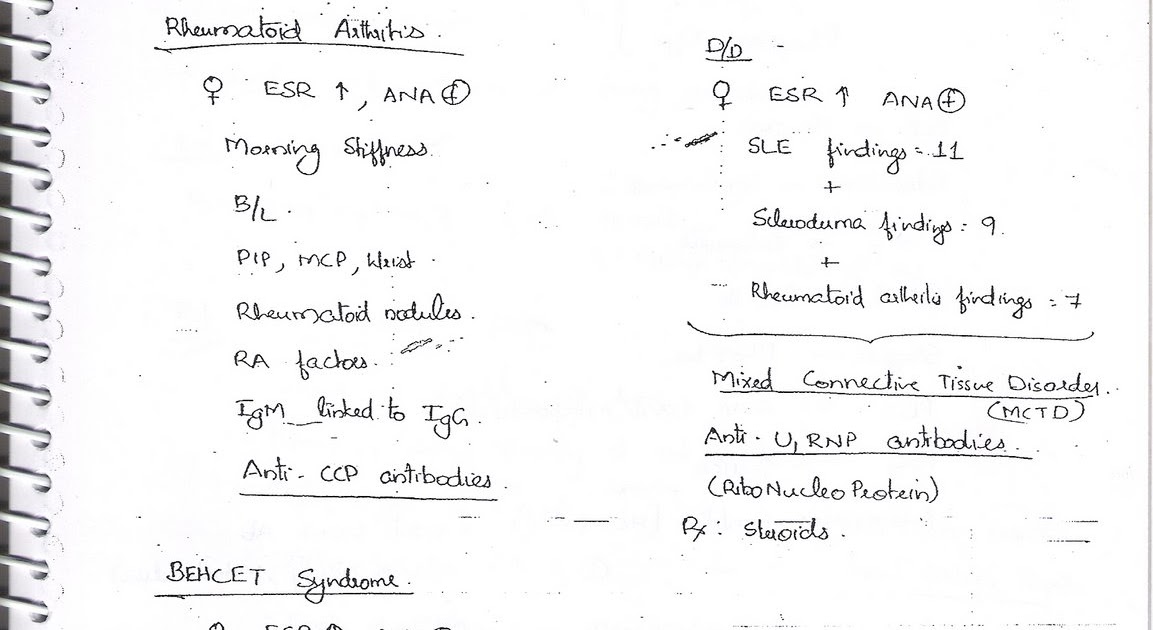 Rheumatoid Arthritis.
♀ ESR ↑, ANA ⊕
Morning Stiffness
B/L.
PIP, MCP, Wrist.
Rheumatoid nodules.
RA factors.
IgM linked to IgG.
Anti-CCP antibodies
BEHCET Syndrome.
D/D -
♀ ESR ↑ ANA ⊕
SLE findings = 11
+
Scleroderma findings = 9.
+
Rheumatoid arthritis findings = 7
Mixed Connective Tissue Disorder.
(MCTD)
Anti-U₁RNP antibodies.
(RiboNucleoProtein)
Rx: Steroids.